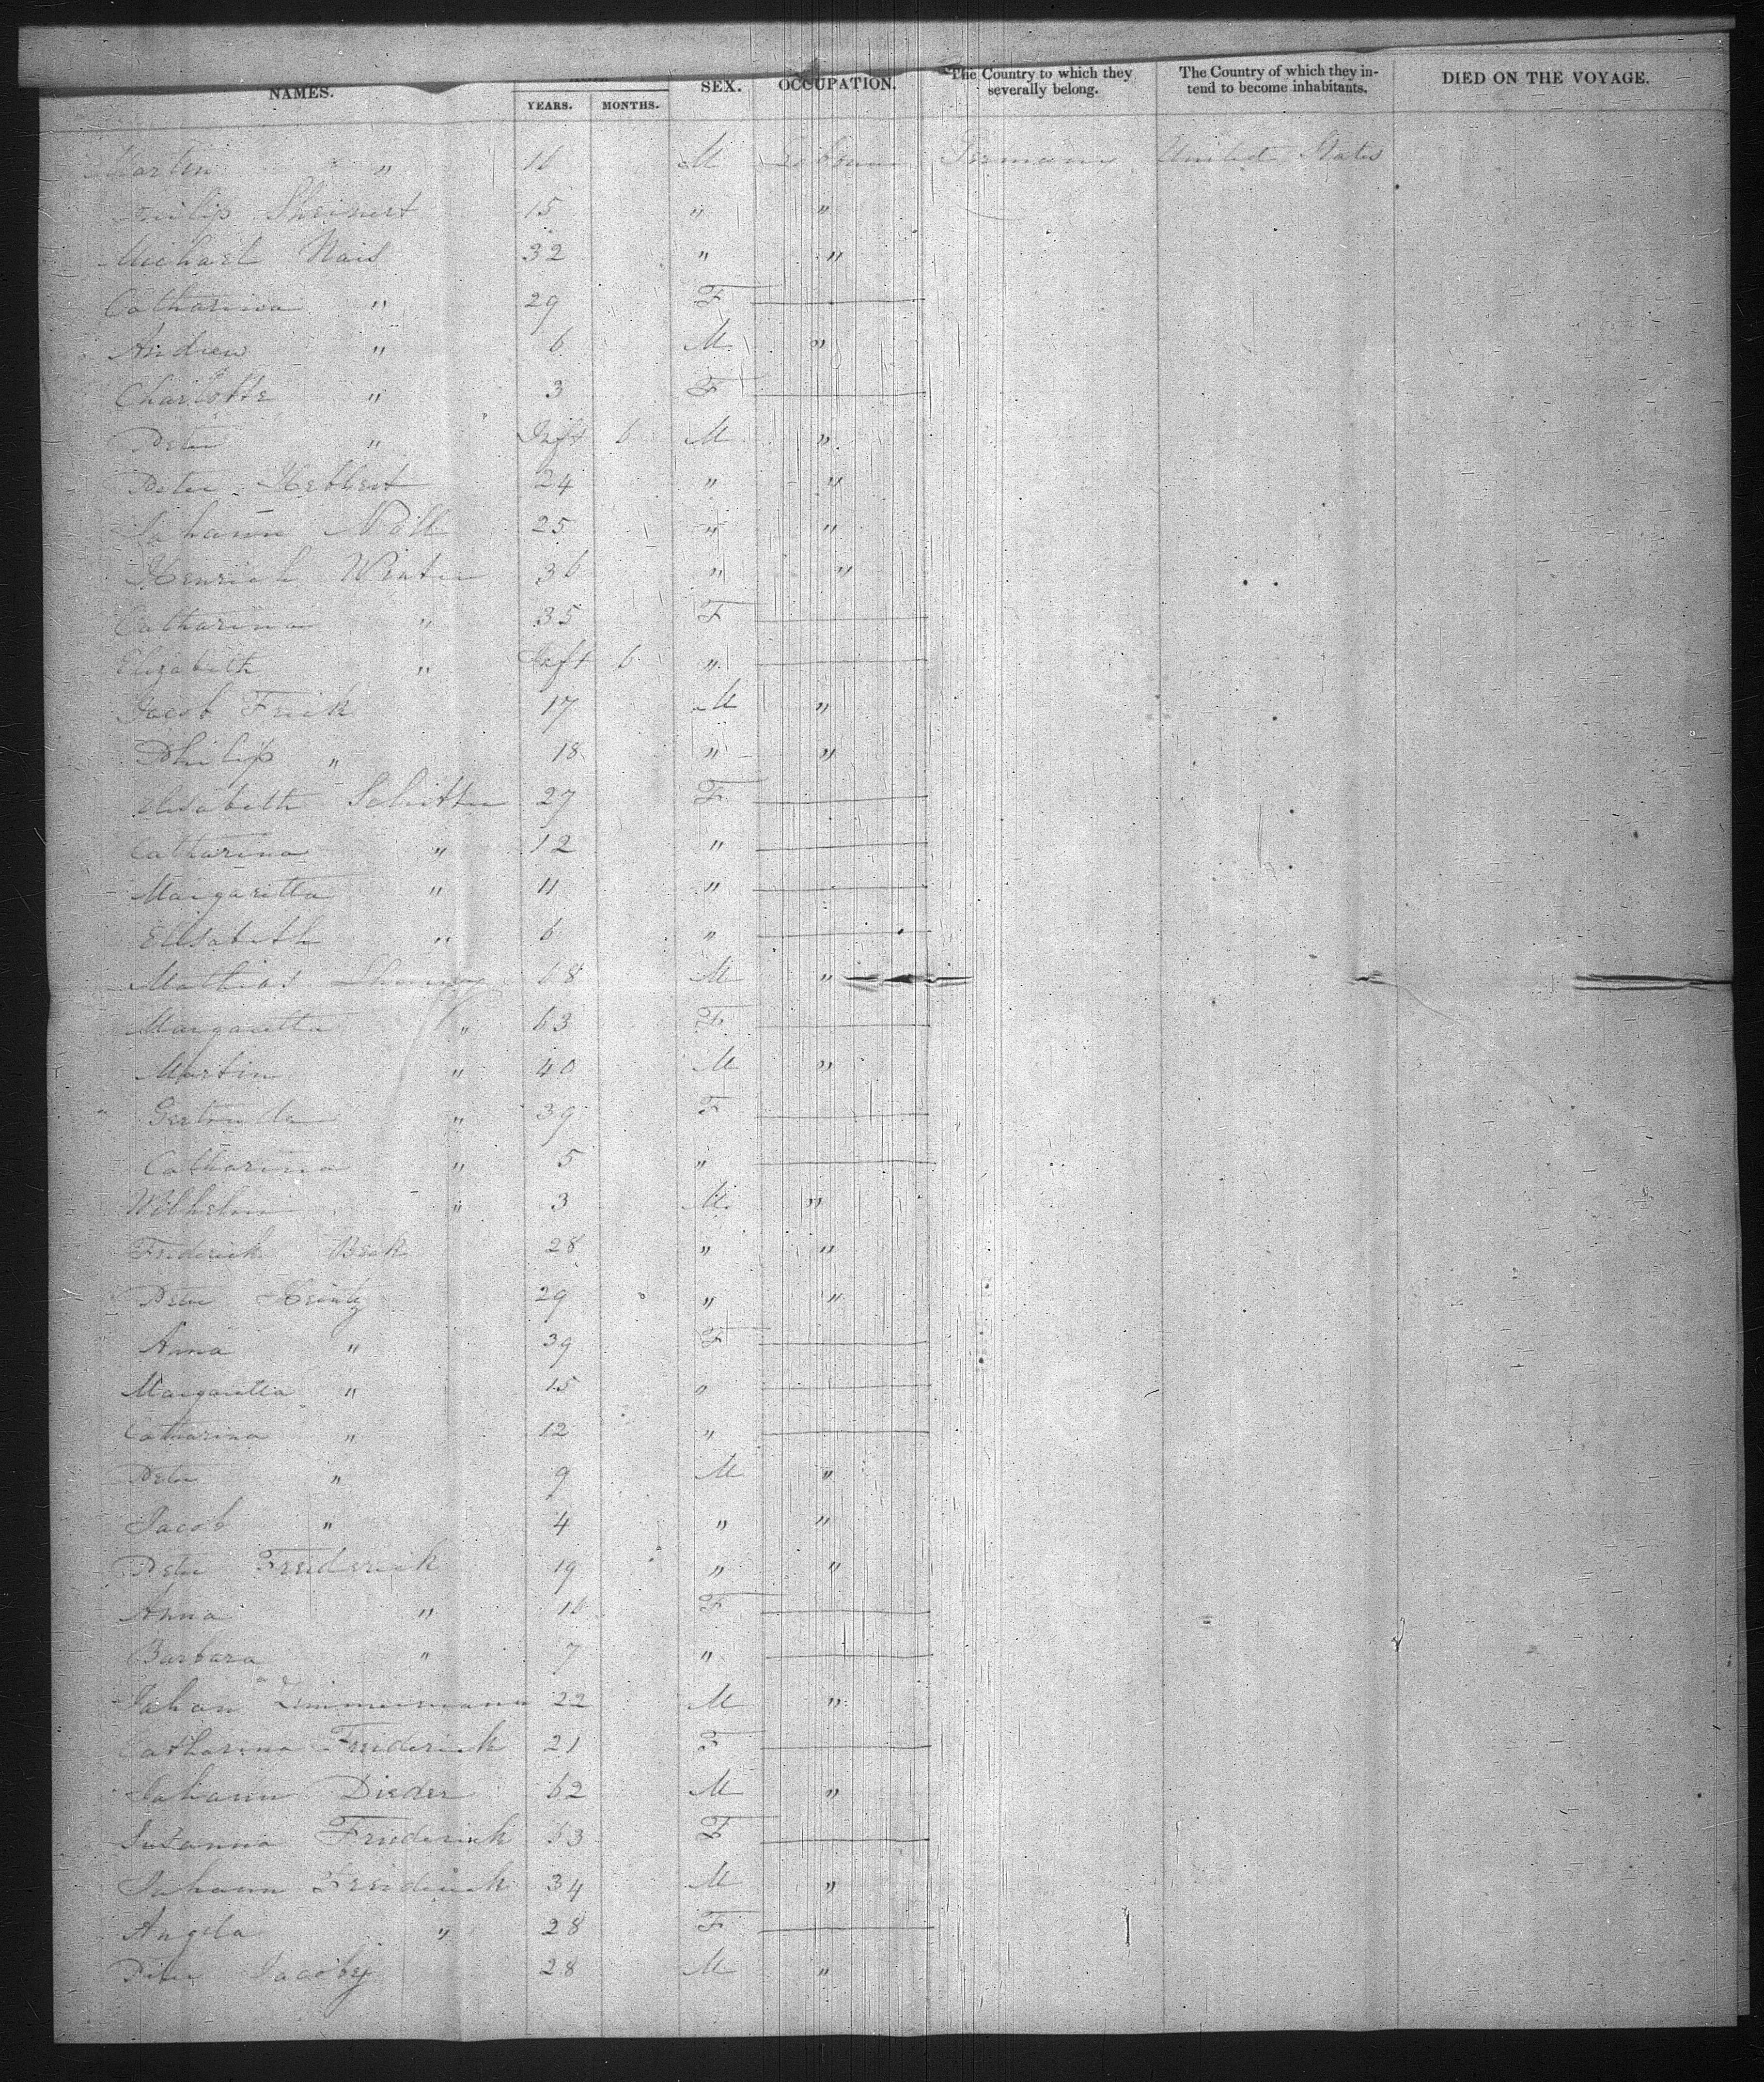 NAMES. YEARS. MONTHS. SEX. OCCUPATION. The Country to which they severally belong. The Country of which they in-tend to become inhabitants. DIED ON THE VOYAGE.
Martin " 11 M Germany United States
Philip 15 " "
Michael Nais 32 " "
Catharina " 29 F
Andrew " 6 M "
Charlotte " 3 F
Peter " Inft 6 M "
Peter 24 " "
Johann Noll 25 " "
Henrich Winter 36 " "
Catharina " 35 F
Elizabeth " Inft 6 "
Jacob Frick 17 M "
Philip " 18 " "
Elisabeth 27 F
Catharina " 12 "
Margaretta " 11 "
Elisabeth " 6 "
Mathias 68 M "
Margaretta " 63 F
Martin " 40 M "
Gertruda " 39 F
Catharina " 5 "
Wilhelm " 3 M "
Frederick Beck 28 " "
Peter Heintz 29 " "
Anna " 39 F
Margaretta " 15 "
Catharina " 12 "
Peter " 9 M "
Jacob " 4 " "
Peter Frederick 19 " "
Anna " 16 F
Barbara " 7 "
Johan Zimmermann 22 M "
Catharina Frederick 21 F
Johann Dieder 62 M "
Susanna Frederick 53 F
Johann Frederick 34 M "
Angela " 28 F
Peter Jacoby 28 M "